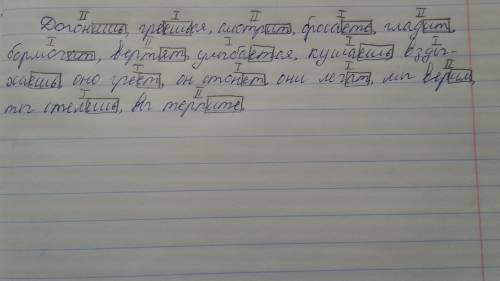 II I II I II
Догонишь, греешься, смотрит, бросаете, гладит,
I II I I I
бормочет, вертят, улыбается, кушаешь взды-
I I II II
хаешь, оно греет, он стонет, они летят, мы верим,
I II
ты стелешь, вы терпите.